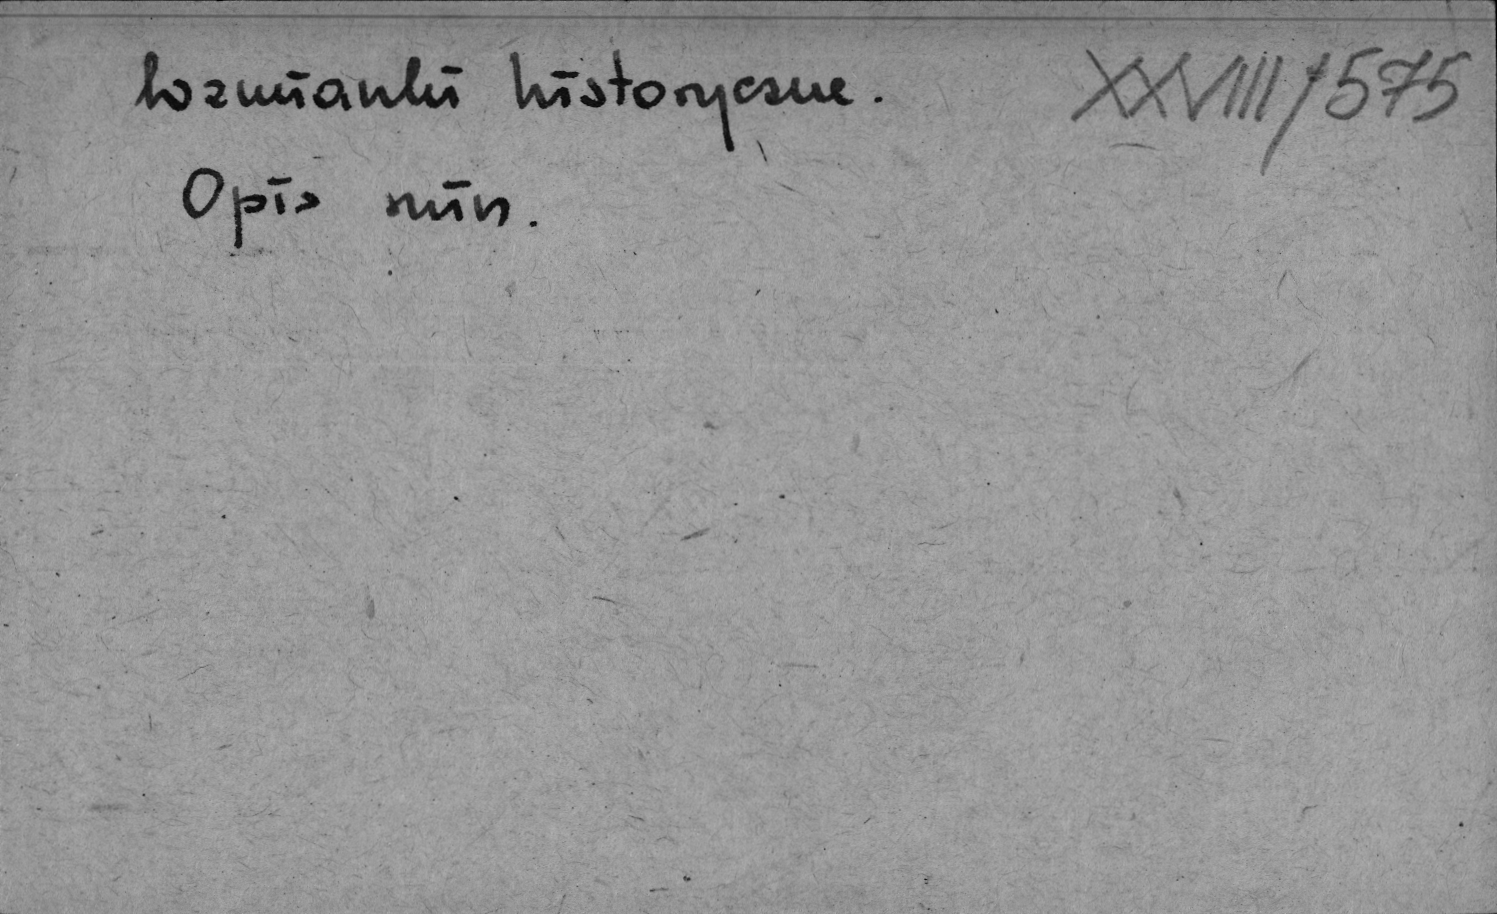 Wzmianki historyczne. XXVIII/575
Opis min.